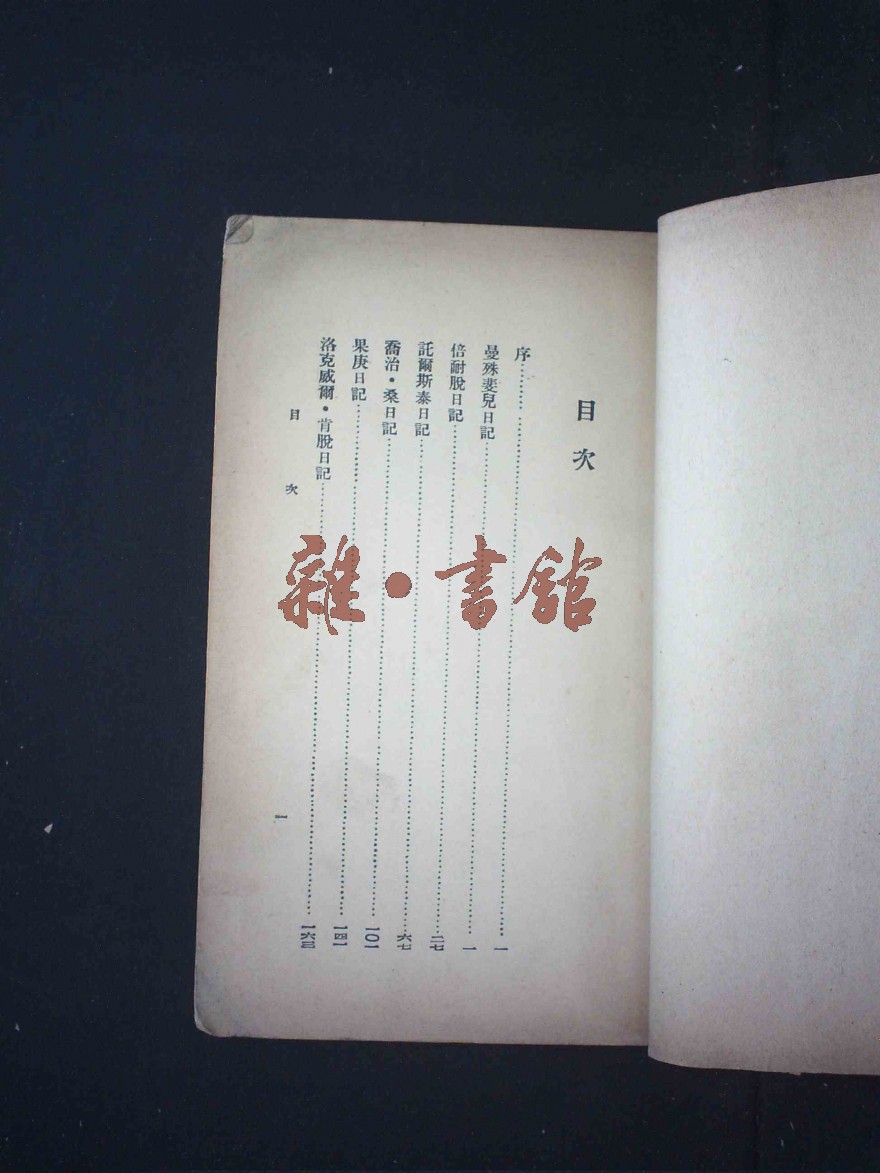 目次
序 一
曼殊斐兒日記 一
倍耐脫日記 二七
託爾斯泰日記 六七
喬治・桑日記 一〇一
果庚日記 一四一
洛克威爾・肯脫日記 一六三
目次
一
雜・書館